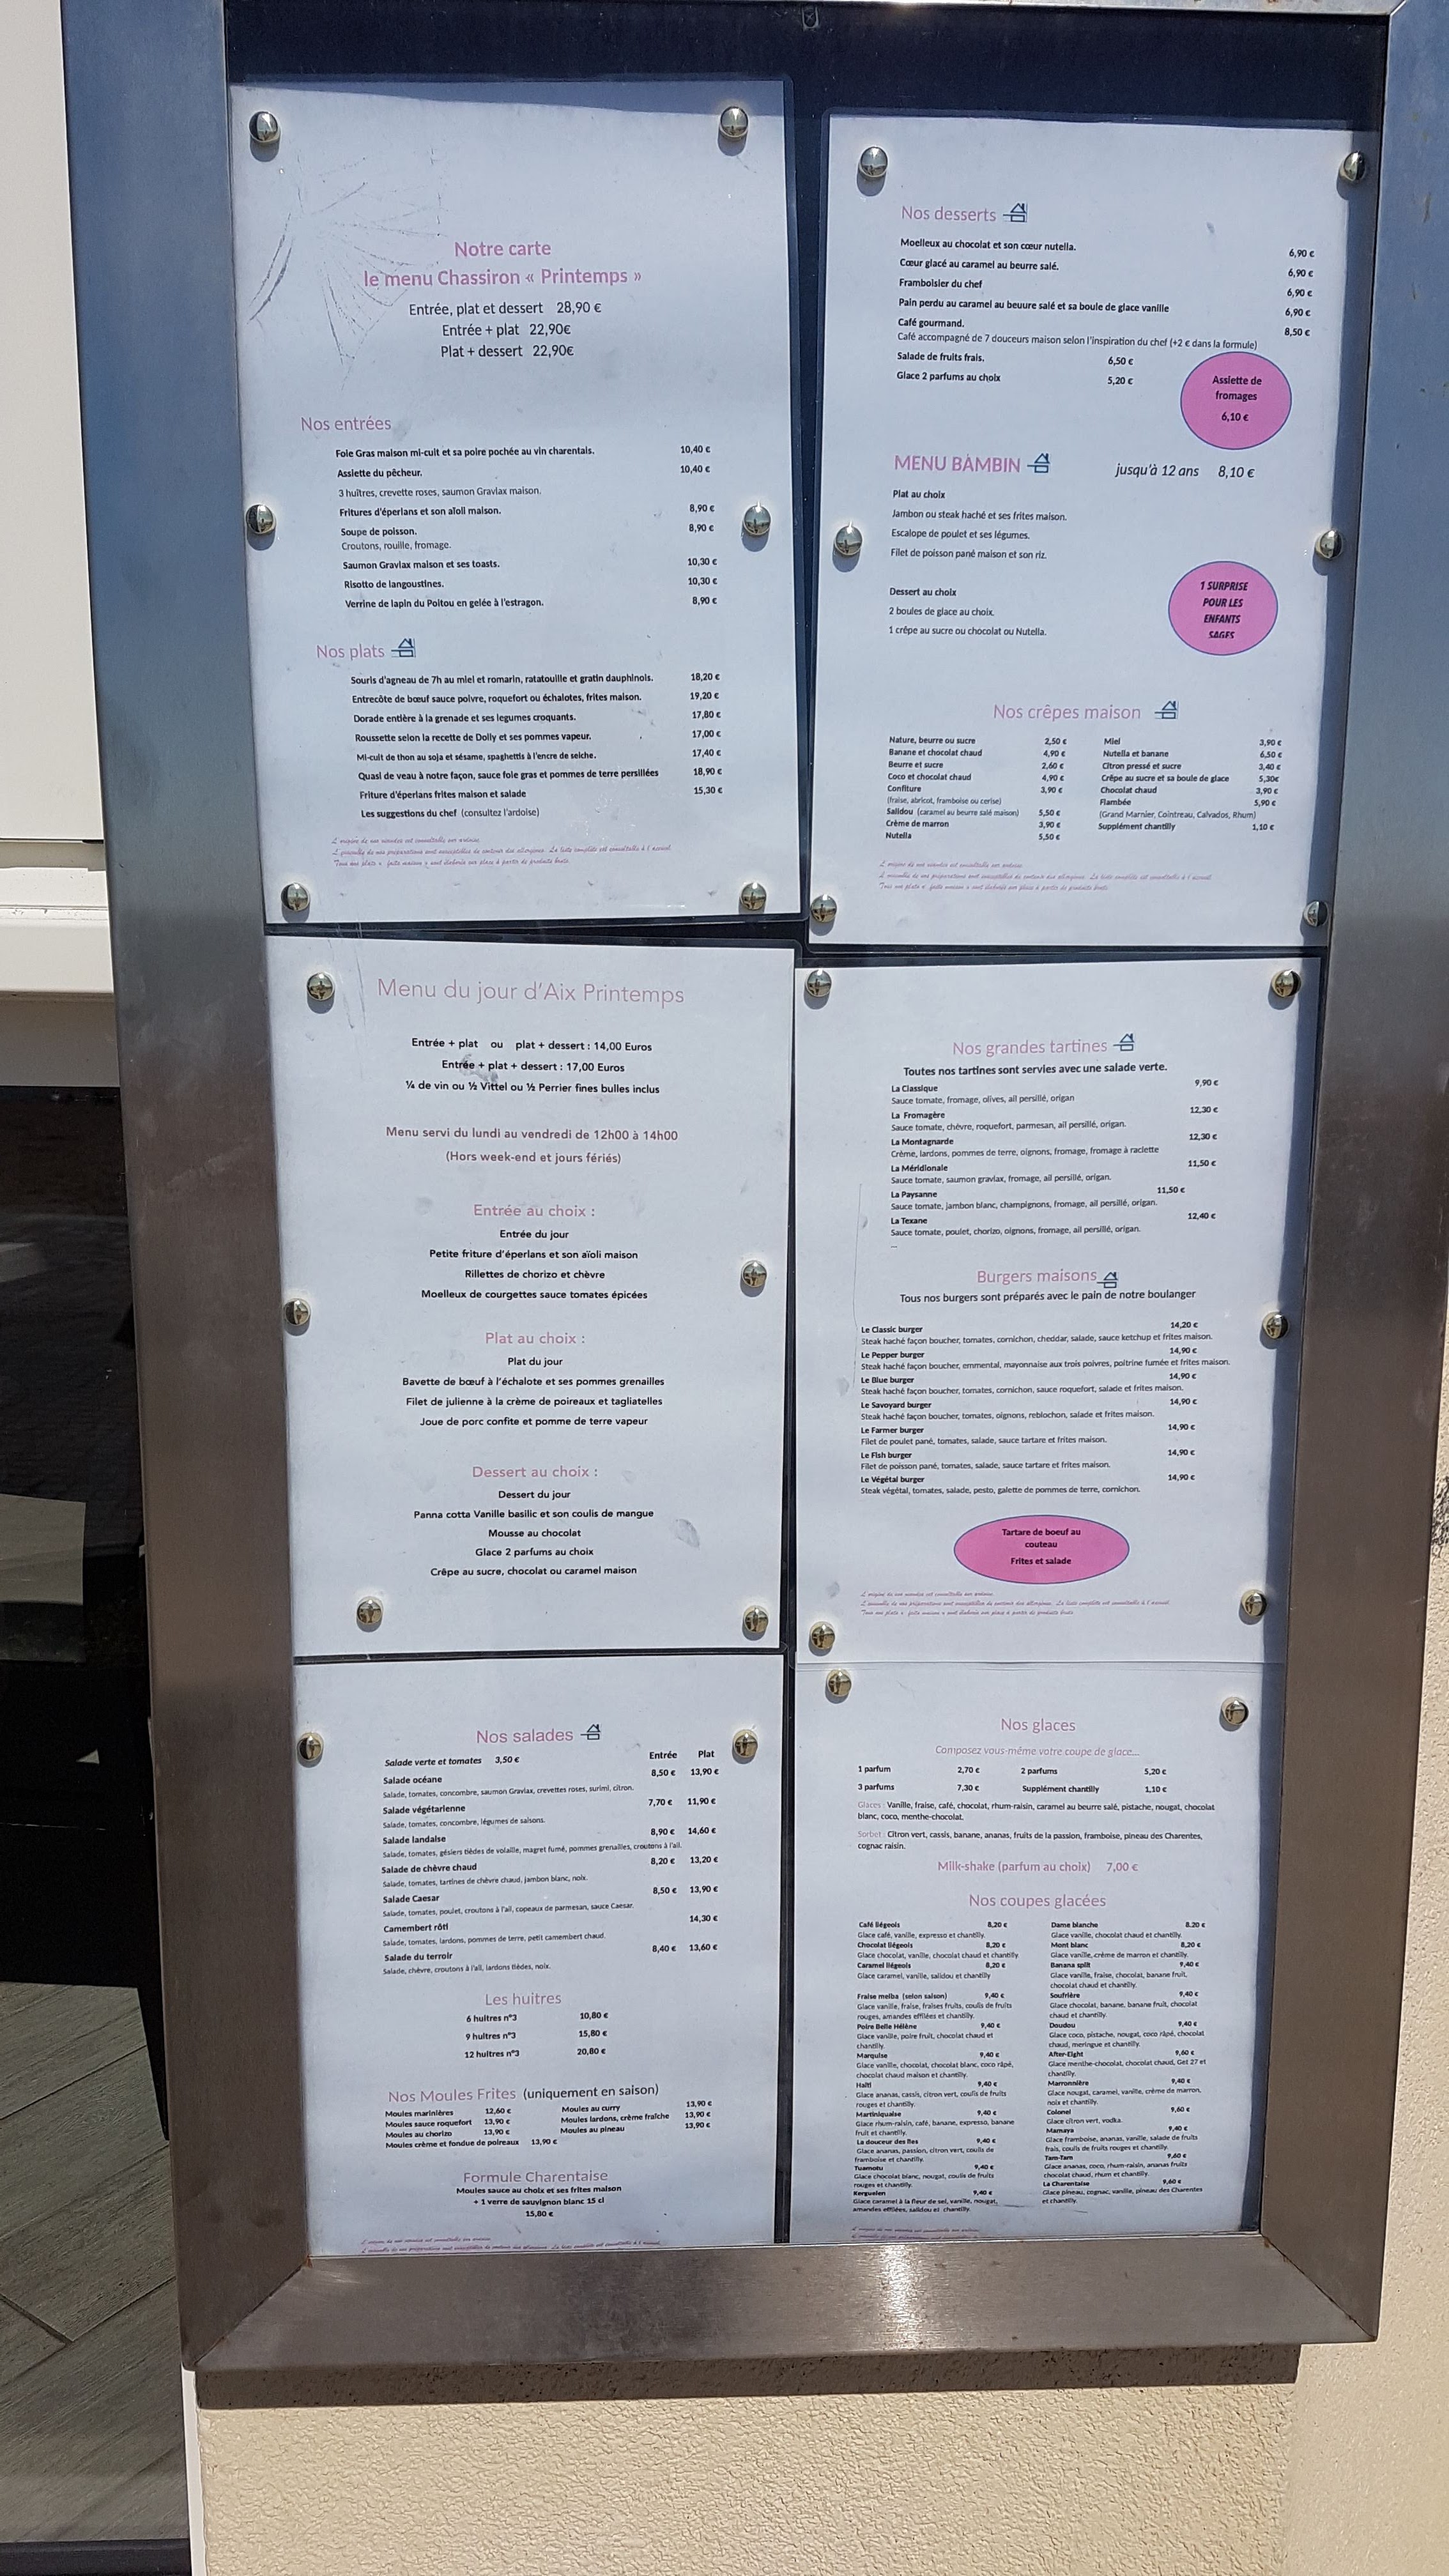 Notre carte
le menu Chassiron « Printemps »
Entrée, plat et dessert 28,90 €
Entrée + plat 22,90€
Plat + dessert 22,90€
Nos entrées
Foie Gras maison mi-cuit et sa poire pochée au vin charentais. 10,40 €
Assiette du pêcheur. 10,40 €
3 huîtres, crevette roses, saumon Gravlax maison.
Fritures d'éperlans et son aïoli maison. 8,90 €
Soupe de poisson. 8,90 €
Croutons, rouille, fromage.
Saumon Gravlax maison et ses toasts. 10,30 €
Risotto de langoustines. 10,30 €
Verrine de lapin du Poitou en gelée à l'estragon. 8,90 €
Nos plats
Souris d'agneau de 7h au miel et romarin, ratatouille et gratin dauphinois. 18,20 €
Entrecôte de bœuf sauce poivre, roquefort ou échalotes, frites maison. 19,20 €
Dorade entière à la grenade et ses legumes croquants. 17,80 €
Roussette selon la recette de Dolly et ses pommes vapeur. 17,00 €
Mi-cuit de thon au soja et sésame, spaghettis à l'encre de seiche. 17,40 €
Quasi de veau à notre façon, sauce foie gras et pommes de terre persillées 18,90 €
Friture d'éperlans frites maison et salade 15,30 €
Les suggestions du chef (consultez l'ardoise)
L'origine de nos viandes est consultable sur ardoise.
L'ensemble de nos préparations sont susceptibles de contenir des allergènes. La liste complète est consultable à l'accueil.
Tous nos plats « faits maison » sont élaborés sur place à partir de produits bruts.
Nos desserts
Moelleux au chocolat et son cœur nutella. 6,90 €
Cœur glacé au caramel au beurre salé. 6,90 €
Framboisier du chef 6,90 €
Pain perdu au caramel au beuure salé et sa boule de glace vanille 6,90 €
Café gourmand. 8,50 €
Café accompagné de 7 douceurs maison selon l'inspiration du chef (+2 € dans la formule)
Salade de fruits frais. 6,50 €
Glace 2 parfums au choix 5,20 €
Assiette de
fromages
6,10 €
MENU BAMBIN jusqu'à 12 ans 8,10 €
Plat au choix
Jambon ou steak haché et ses frites maison.
Escalope de poulet et ses légumes.
Filet de poisson pané maison et son riz.
Dessert au choix
2 boules de glace au choix.
1 crêpe au sucre ou chocolat ou Nutella.
1 SURPRISE
POUR LES
ENFANTS
SAGES
Nos crêpes maison
Nature, beurre ou sucre 2,50 €
Banane et chocolat chaud 4,90 €
Beurre et sucre 2,60 €
Coco et chocolat chaud 4,90 €
Confiture 3,90 €
(fraise, abricot, framboise ou cerise)
Salidou (caramel au beurre salé maison) 5,50 €
Crème de marron 3,90 €
Nutella 5,50 €
Miel 3,90 €
Nutella et banane 6,50 €
Citron pressé et sucre 3,40 €
Crêpe au sucre et sa boule de glace 5,30€
Chocolat chaud 3,90 €
Flambée 5,90 €
(Grand Marnier, Cointreau, Calvados, Rhum)
Supplément chantilly 1,10 €
L'origine de nos viandes est consultable sur ardoise.
L'ensemble de nos préparations sont susceptibles de contenir des allergènes. La liste complète est consultable à l'accueil.
Tous nos plats « faits maison » sont élaborés sur place à partir de produits bruts.
Menu du jour d'Aix Printemps
Entrée + plat ou plat + dessert : 14,00 Euros
Entrée + plat + dessert : 17,00 Euros
¼ de vin ou ½ Vittel ou ½ Perrier fines bulles inclus
Menu servi du lundi au vendredi de 12h00 à 14h00
(Hors week-end et jours fériés)
Entrée au choix :
Entrée du jour
Petite friture d'éperlans et son aïoli maison
Rillettes de chorizo et chèvre
Moelleux de courgettes sauce tomates épicées
Plat au choix :
Plat du jour
Bavette de bœuf à l'échalote et ses pommes grenailles
Filet de julienne à la crème de poireaux et tagliatelles
Joue de porc confite et pomme de terre vapeur
Dessert au choix :
Dessert du jour
Panna cotta Vanille basilic et son coulis de mangue
Mousse au chocolat
Glace 2 parfums au choix
Crêpe au sucre, chocolat ou caramel maison
Nos grandes tartines
Toutes nos tartines sont servies avec une salade verte.
La Classique 9,90 €
Sauce tomate, fromage, olives, ail persillé, origan
La Fromagère 12,30 €
Sauce tomate, chèvre, roquefort, parmesan, ail persillé, origan.
La Montagnarde 12,30 €
Crème, lardons, pommes de terre, oignons, fromage, fromage à raclette
La Méridionale 11,50 €
Sauce tomate, saumon gravlax, fromage, ail persillé, origan.
La Paysanne 11,50 €
Sauce tomate, jambon blanc, champignons, fromage, ail persillé, origan.
La Texane 12,40 €
Sauce tomate, poulet, chorizo, oignons, fromage, ail persillé, origan.
...
Burgers maisons
Tous nos burgers sont préparés avec le pain de notre boulanger
Le Classic burger 14,20 €
Steak haché façon boucher, tomates, cornichon, cheddar, salade, sauce ketchup et frites maison.
Le Pepper burger 14,90 €
Steak haché façon boucher, emmental, mayonnaise aux trois poivres, poitrine fumée et frites maison.
Le Blue burger 14,90 €
Steak haché façon boucher, tomates, cornichon, sauce roquefort, salade et frites maison.
Le Savoyard burger 14,90 €
Steak haché façon boucher, tomates, oignons, reblochon, salade et frites maison.
Le Farmer burger 14,90 €
Filet de poulet pané, tomates, salade, sauce tartare et frites maison.
Le Fish burger 14,90 €
Filet de poisson pané, tomates, salade, sauce tartare et frites maison.
Le Végétal burger 14,90 €
Steak végétal, tomates, salade, pesto, galette de pommes de terre, cornichon.
Tartare de boeuf au
couteau
Frites et salade
L'origine de nos viandes est consultable sur ardoise.
L'ensemble de nos préparations sont susceptibles de contenir des allergènes. La liste complète est consultable à l'accueil.
Tous nos plats « faits maison » sont élaborés sur place à partir de produits bruts.
Nos salades
Salade verte et tomates 3,50 € Entrée Plat
Salade océane 8,50 € 13,90 €
Salade, tomates, concombre, saumon Gravlax, crevettes roses, surimi, citron.
Salade végétarienne 7,70 € 11,90 €
Salade, tomates, concombre, légumes de saisons.
Salade landaise 8,90 € 14,60 €
Salade, tomates, gésiers tièdes de volaille, magret fumé, pommes grenailles, croutons à l'ail.
Salade de chèvre chaud 8,20 € 13,20 €
Salade, tomates, tartines de chèvre chaud, jambon blanc, noix.
Salade Caesar 8,50 € 13,90 €
Salade, tomates, poulet, croutons à l'ail, copeaux de parmesan, sauce Caesar.
Camembert rôti 14,30 €
Salade, tomates, lardons, pommes de terre, petit camembert chaud.
Salade du terroir 8,40 € 13,60 €
Salade, chèvre, croutons à l'ail, lardons tièdes, noix.
Les huitres
6 huîtres n°3 10,80 €
9 huitres n°3 15,80 €
12 huîtres n°3 20,80 €
Nos Moules Frites (uniquement en saison)
Moules marinières 12,60 €
Moules sauce roquefort 13,90 €
Moules au chorizo 13,90 €
Moules crème et fondue de poireaux 13,90 €
Moules au curry 13,90 €
Moules lardons, crème fraîche 13,90 €
Moules au pineau 13,90 €
Formule Charentaise
Moules sauce au choix et ses frites maison
+ 1 verre de sauvignon blanc 15 cl
15,80 €
L'origine de nos viandes est consultable sur ardoise.
L'ensemble de nos préparations sont susceptibles de contenir des allergènes. La liste complète est consultable à l'accueil.
Nos glaces
Composez vous-même votre coupe de glace...
1 parfum 2,70 € 2 parfums 5,20 €
3 parfums 7,30 € Supplément chantilly 1,10 €
Glaces : Vanille, fraise, café, chocolat, rhum-raisin, caramel au beurre salé, pistache, nougat, chocolat
blanc, coco, menthe-chocolat.
Sorbet : Citron vert, cassis, banane, ananas, fruits de la passion, framboise, pineau des Charentes,
cognac raisin.
Milk-shake (parfum au choix) 7,00 €
Nos coupes glacées
Café liégeois 8,20 €
Glace café, vanille, expresso et chantilly.
Chocolat liégeois 8,20 €
Glace chocolat, vanille, chocolat chaud et chantilly
Caramel liégeois 8,20 €
Glace caramel, vanille, salidou et chantilly
Fraise melba (selon saison) 9,40 €
Glace vanille, fraise, fraises fruits, coulis de fruits
rouges, amandes effilées et chantilly.
Poire Belle Hélène 9,40 €
Glace vanille, poire fruit, chocolat chaud et
chantilly.
Marquise 9,40 €
Glace vanille, chocolat, chocolat blanc, coco râpé,
chocolat chaud maison et chantilly.
Haïti 9,40 €
Glace ananas, cassis, citron vert, coulis de fruits
rouges et chantilly.
Martiniquaise 9,40 €
Glace rhum-raisin, café, banane, expresso, banane
fruit et chantilly.
La douceur des îles 9,40 €
Glace ananas, passion, citron vert, coulis de
framboise et chantilly.
Tuamotu 9,40 €
Glace chocolat blanc, nougat, coulis de fruits
rouges et chantilly.
Kerguelen 9,40 €
Glace caramel à la fleur de sel, vanille, nougat,
amandes effilées, salidou et chantilly.
Dame blanche 8,20 €
Glace vanille, chocolat chaud et chantilly.
Mont blanc 8,20 €
Glace vanille, crème de marron et chantilly.
Banana split 9,40 €
Glace vanille, fraise, chocolat, banane fruit,
chocolat chaud et chantilly.
Soufrière 9,40 €
Glace chocolat, banane, banane fruit, chocolat
chaud et chantilly.
Doudou 9,40 €
Glace coco, pistache, nougat, coco râpé, chocolat
chaud, meringue et chantilly.
After-Eight 9,60 €
Glace menthe-chocolat, chocolat chaud, Get 27 et
chantilly.
Marronnière 9,40 €
Glace nougat, caramel, vanille, crème de marron,
noix et chantilly.
Colonel 9,60 €
Glace citron vert, vodka.
Mamaya 9,40 €
Glace framboise, ananas, vanille, salade de fruits
frais, coulis de fruits rouges et chantilly.
Tam-Tam 9,60 €
Glace ananas, coco, rhum-raisin, ananas fruits
chocolat chaud, rhum et chantilly.
La Charentaise 9,60 €
Glace pineau, cognac, vanille, pineau des Charentes
et chantilly.